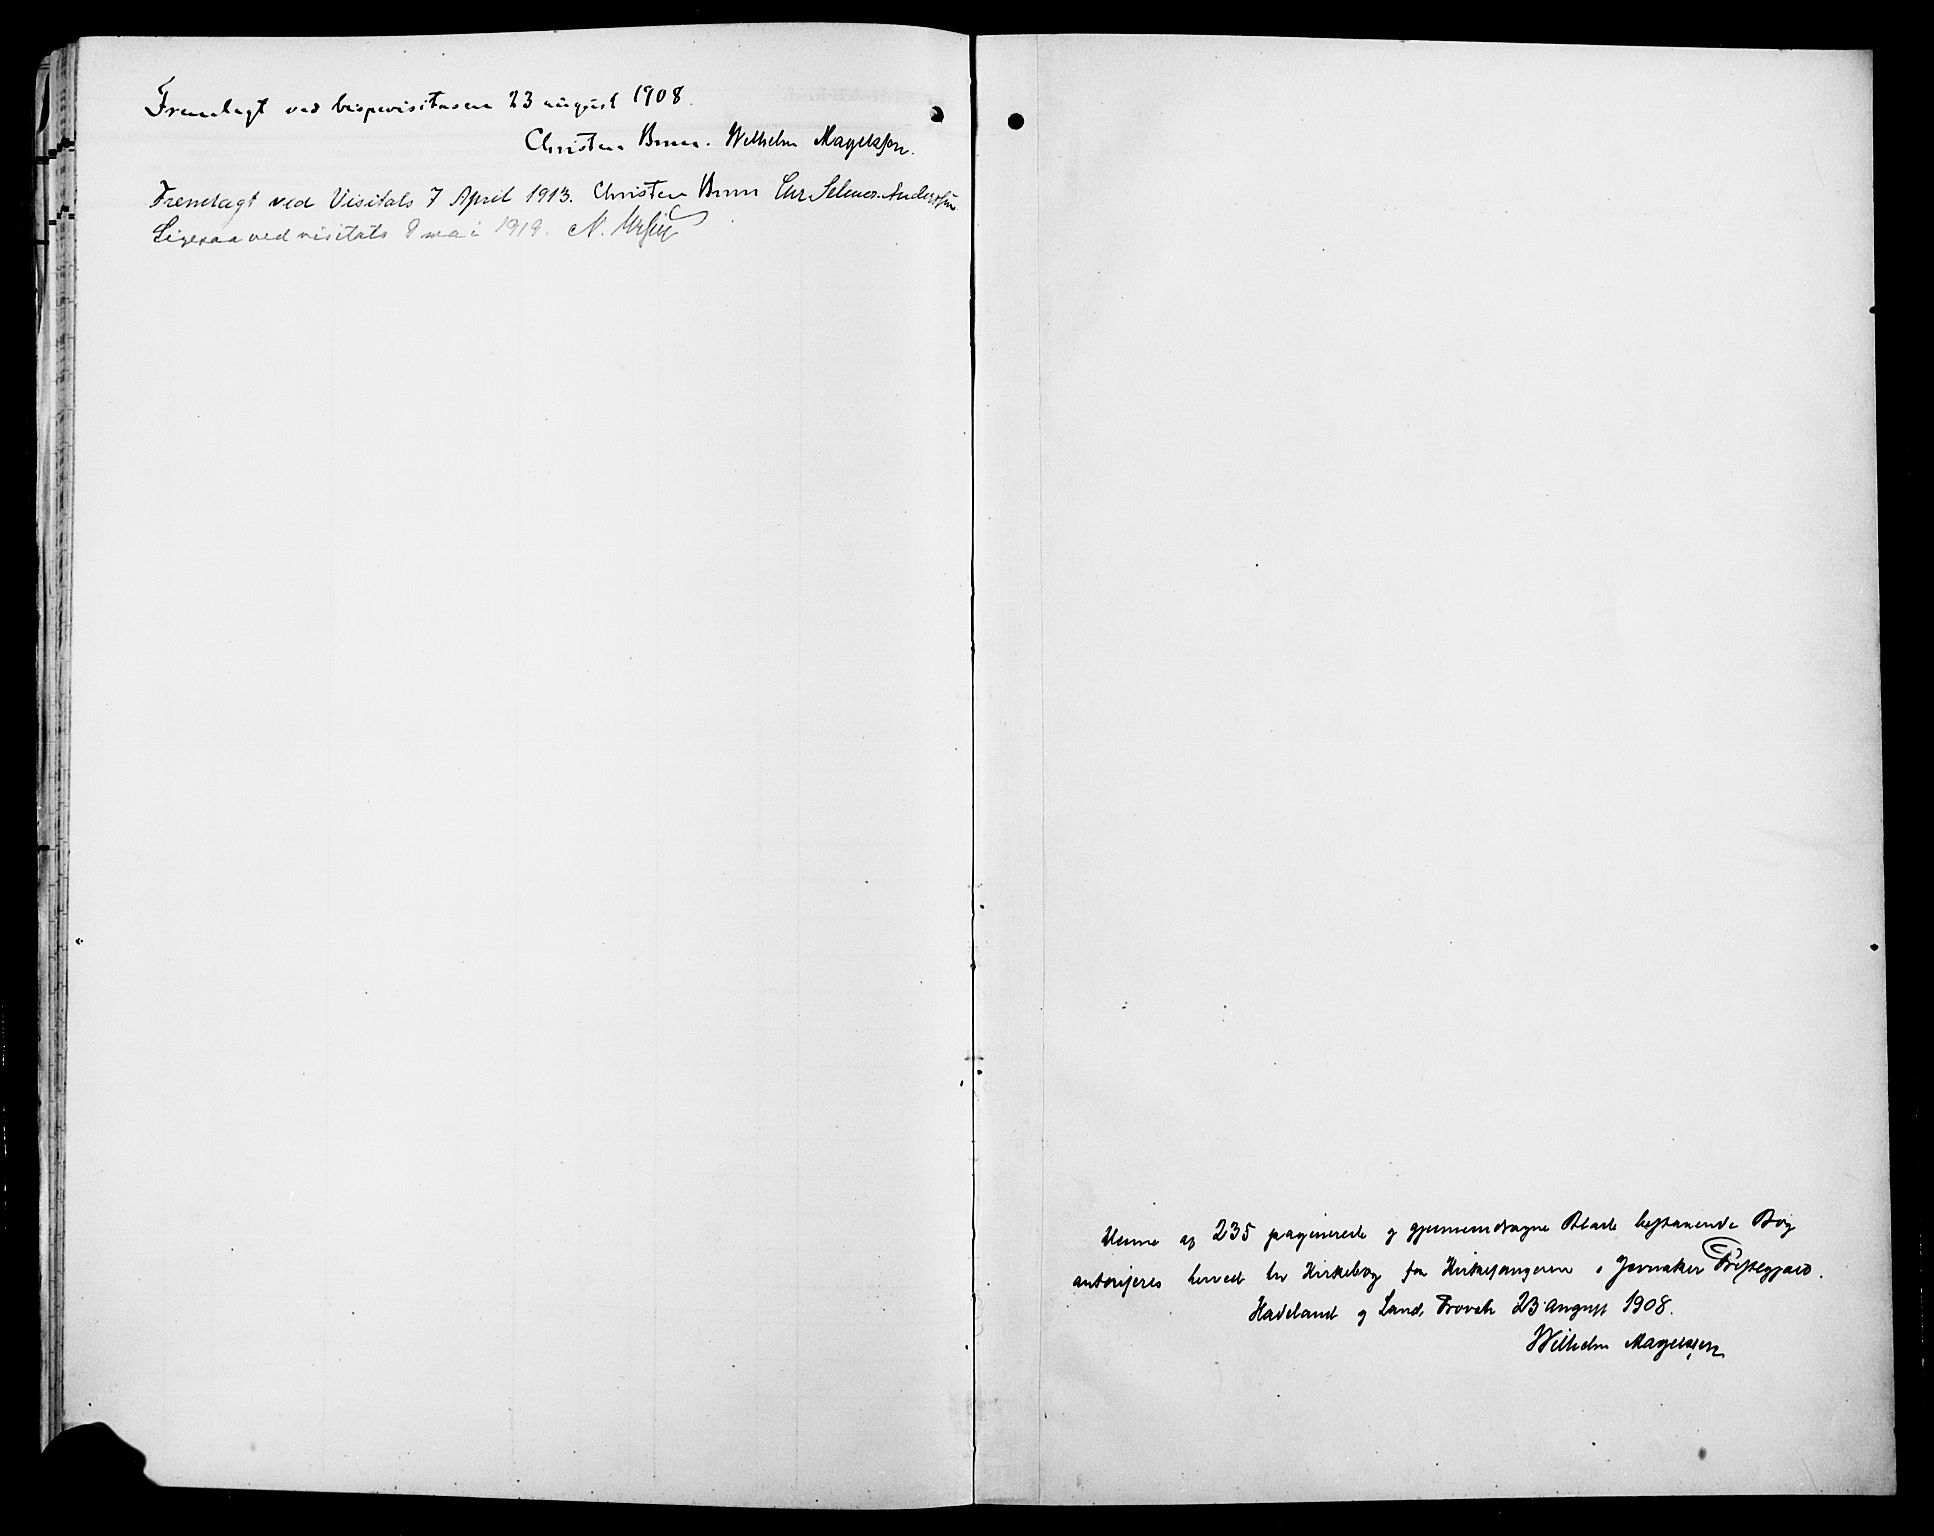 Fremlagt ved bispevisitasen 23 august 1908.
Christen Brun. Wilhelm Magelssen.
Fremlagt ved Visitats 7 April 1913. Christen Brun Chr. Selmer-Anderssen
Ligesaa ved visitats 9 mai 1919. N.
Denne af 235 paginerede og gjennemdragne Blade bestaaende Bog
autoriseres herved til Kirkebog for Kirkesangeren i Jevnaker Præstegjæld.
Hadeland og Lands Provsti 23 August 1908.
Wilhelm Magelssen